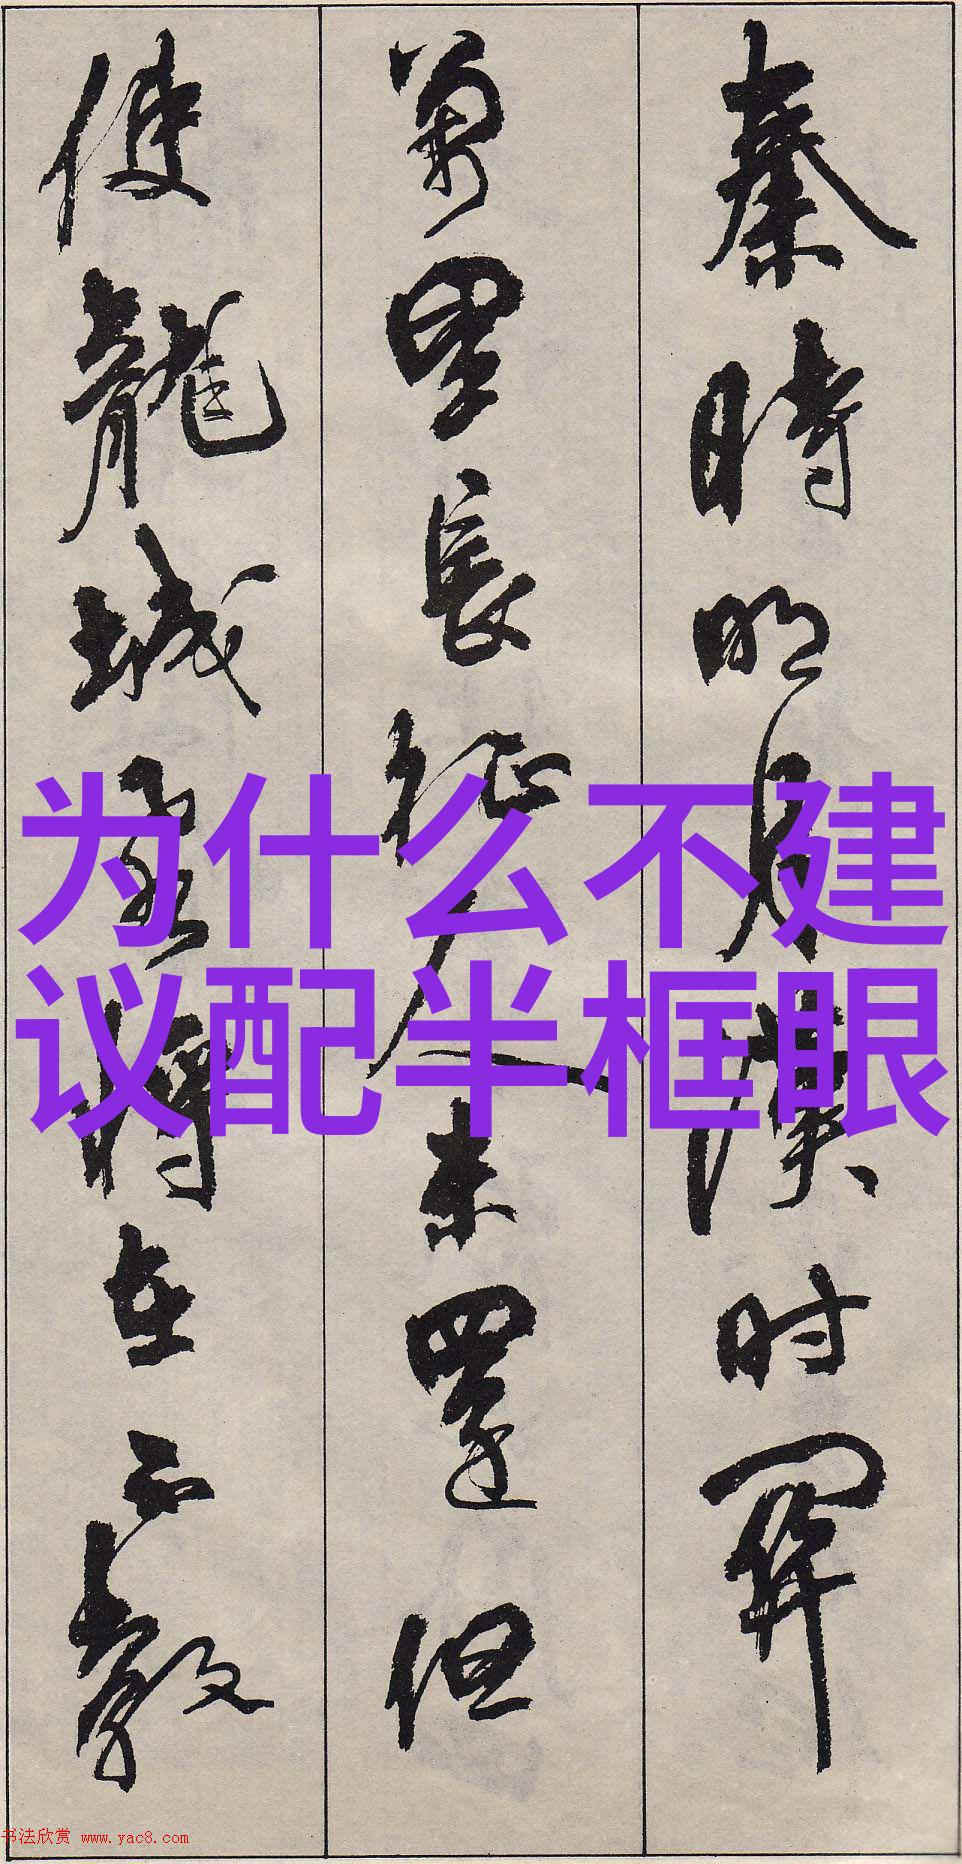 秦時明月漢时関
萬里長征人未還但
使龍城飛將在不教
为什么不建
议配半框眼
书法欣赏 www.yac8.com